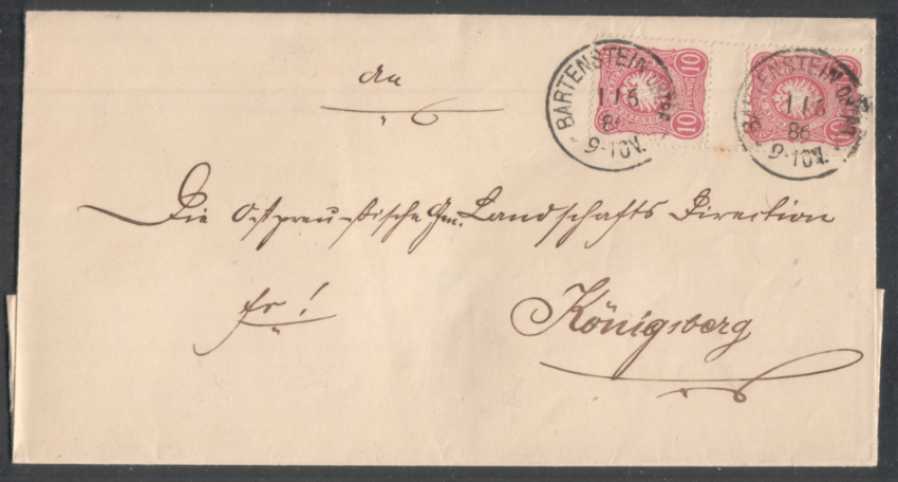 An
BARTENSTEIN
1 1 5
86
9-10V.
10
10
BARTENSTEIN
1 1 5
86
9-10V.
Die Ostpreußische Gen. Landschafts Direction
fr!
Königsberg